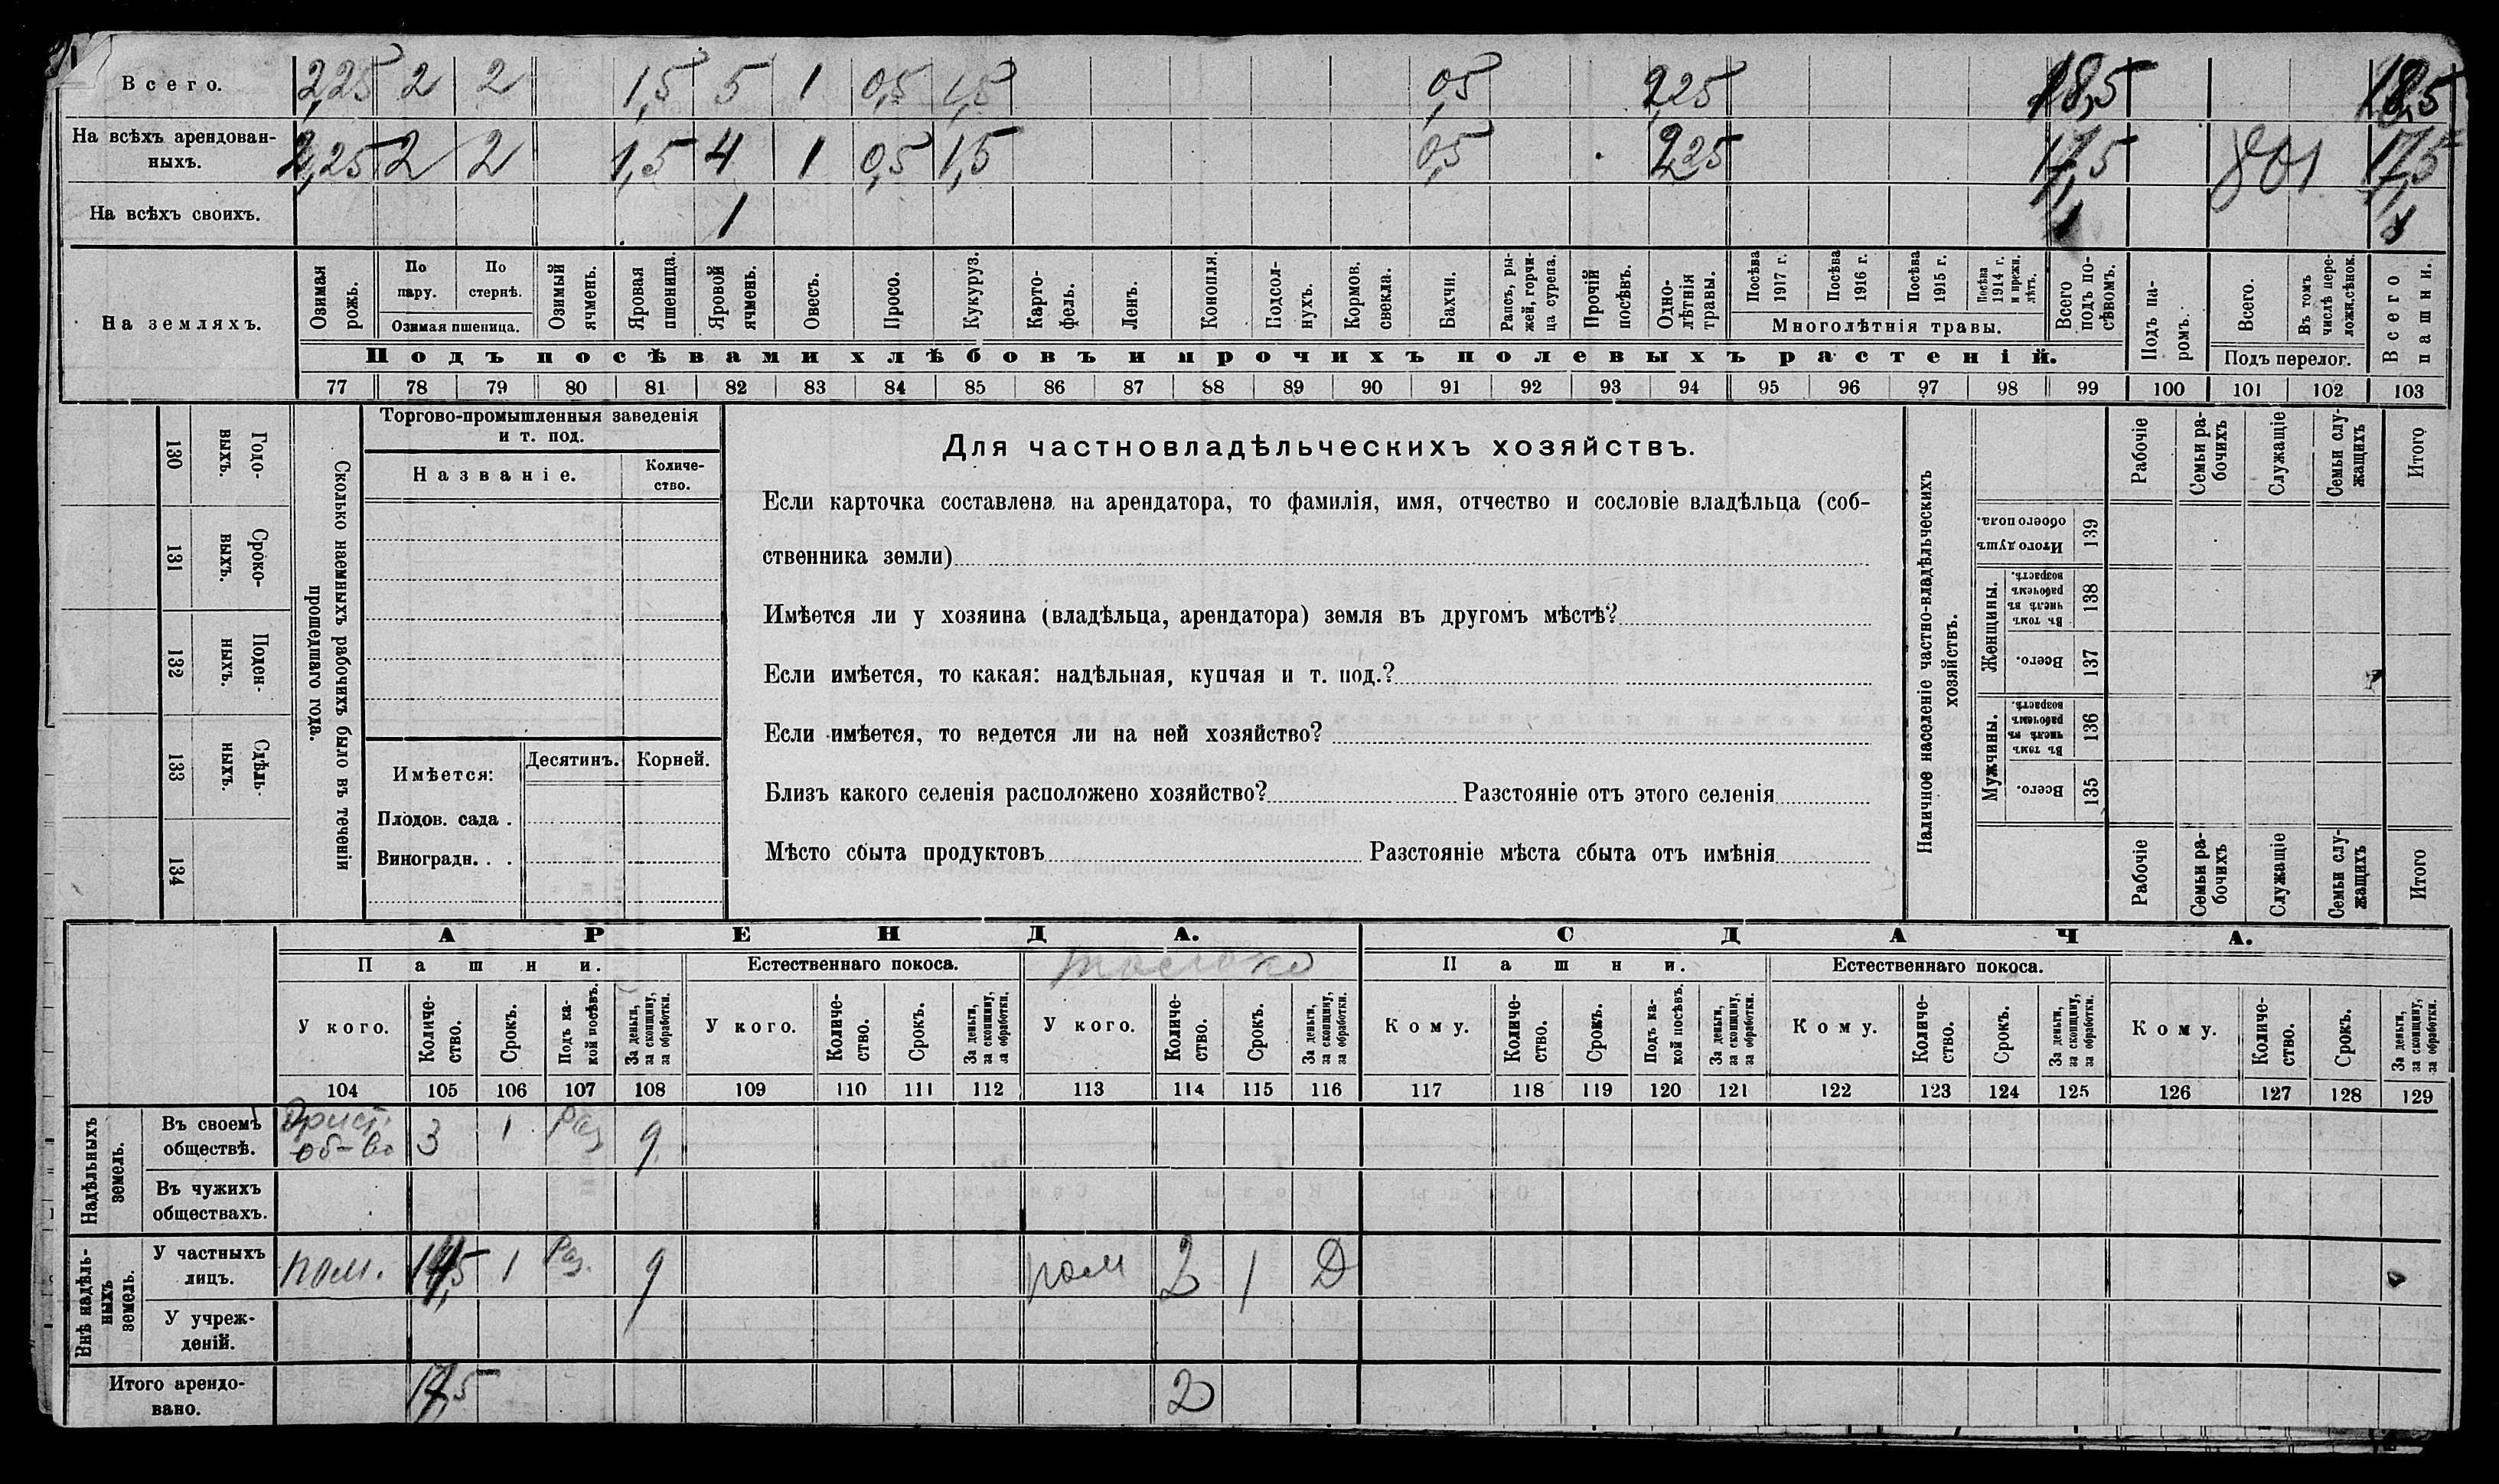 Всего. 2,25 2 2 1,5 5 1 0,5 1,5 0,5 2,25 18,5 18,5
На всѣхъ арендован-
ныхъ. 2,25 2 2 1,5 4 1 0,5 1,5 0,5 2,25 17,5 801 17,5
На всѣхъ своихъ. 1 1 1
На земляхъ.
Озимая рожь.
По пару.
По стернѣ.
Озимая пшеница.
Озимый ячмень.
Яровая пшеница.
Яровой ячмень.
Овесъ.
Просо.
Кукуруз.
Карто-
фель.
Ленъ.
Конопля.
Подсол-
нухъ.
Кормов. свекла.
Бахчи.
Рапсъ, ры-
жей, горчи-
ца сурепа.
Прочій посѣвъ.
Одно-
лѣтнія травы.
Посѣва 1917 г.
Посѣва 1916 г.
Посѣва 1915 г.
Посѣва 1914 г. и прежн. лѣтъ.
Многолѣтнія травы.
Всего подъ по-
сѣвомъ.
Подъ посѣвами хлѣбовъ и прочихъ полевыхъ растеній.
Подъ па-
ромъ.
Всего.
Въ томъ числѣ пере-
ложн.сѣнок.
Подъ перелог.
Всего пашни.
77 78 79 80 81 82 83 84 85 86 87 88 89 90 91 92 93 94 95 96 97 98 99 100 101 102 103
130 Годо-
выхъ.
131 Сроко-
выхъ.
132 Поден-
ныхъ.
133 Сдѣль-
ныхъ.
134
Сколько наемныхъ рабочихъ было въ теченіи
прошедшаго года.
Торгово-промышленныя заведенія
и т. под.
Названіе.
Количе-
ство.
Имѣется: Десятинъ. Корней.
Плодов. сада .
Виноградн. . .
Для частновладѣльческихъ хозяйствъ.
Если карточка составлена на арендатора, то фамилія, имя, отчество и сословіе владѣльца (соб-
ственника земли)
Имѣется ли у хозяина (владѣльца, арендатора) земля въ другомъ мѣстѣ?
Если имѣется, то какая: надѣльная, купчая и т. под.?
Если имѣется, то ведется ли на ней хозяйство?
Близъ какого селенія расположено хозяйство? Разстояніе отъ этого селенія
Мѣсто сбыта продуктовъ Разстояніе мѣста сбыта отъ имѣнія
Наличное населеніе частно-владѣльческихъ
хозяйствъ.
Рабочіе
Семьи ра-
бочихъ
Служащіе
Семьи слу-
жащихъ
Итого
Итого душъ обоего пола. 139
Женщины.
Въ томъ числѣ въ рабочемъ возрастѣ. 138
Всего. 137
Мужчины.
Въ томъ числѣ въ рабочемъ возрастѣ. 136
Всего. 135
Рабочіе
Семьи ра-
бочихъ
Служащіе
Семьи слу-
жащихъ
Итого
АРЕНДА. СДАЧА.
Пашни. Естественнаго покоса. толока Пашни. Естественнаго покоса.
У кого.
Количе-
ство.
Срокъ.
Подъ ка-
кой посѣвъ.
За деньги, за скопщину, за обработки.
У кого.
Количе-
ство.
Срокъ.
За деньги, за скопщину, за обработки.
У кого.
Количе-
ство.
Срокъ.
За деньги, за скопщину, за обработки.
Кому.
Количе-
ство.
Срокъ.
Подъ ка-
кой посѣвъ.
За деньги, за скопщину, за обработки.
Кому.
Количе-
ство.
Срокъ.
За деньги, за скопщину, за обработки.
Кому.
Количе-
ство.
Срокъ.
За деньги, за скопщину, за обработки.
104 105 106 107 108 109 110 111 112 113 114 115 116 117 118 119 120 121 122 123 124 125 126 127 128 129
Надѣльныхъ
земель.
Въ своемъ
обществѣ. об-во 3 1 Раз
Въ чужихъ
обществахъ.
Внѣ надѣль-
ныхъ
земель.
У частныхъ
лицъ. пом. 14,5 1 Раз. пом 2 1 Д
У учреж-
деній.
Итого арендо-
вано. 17,5 2